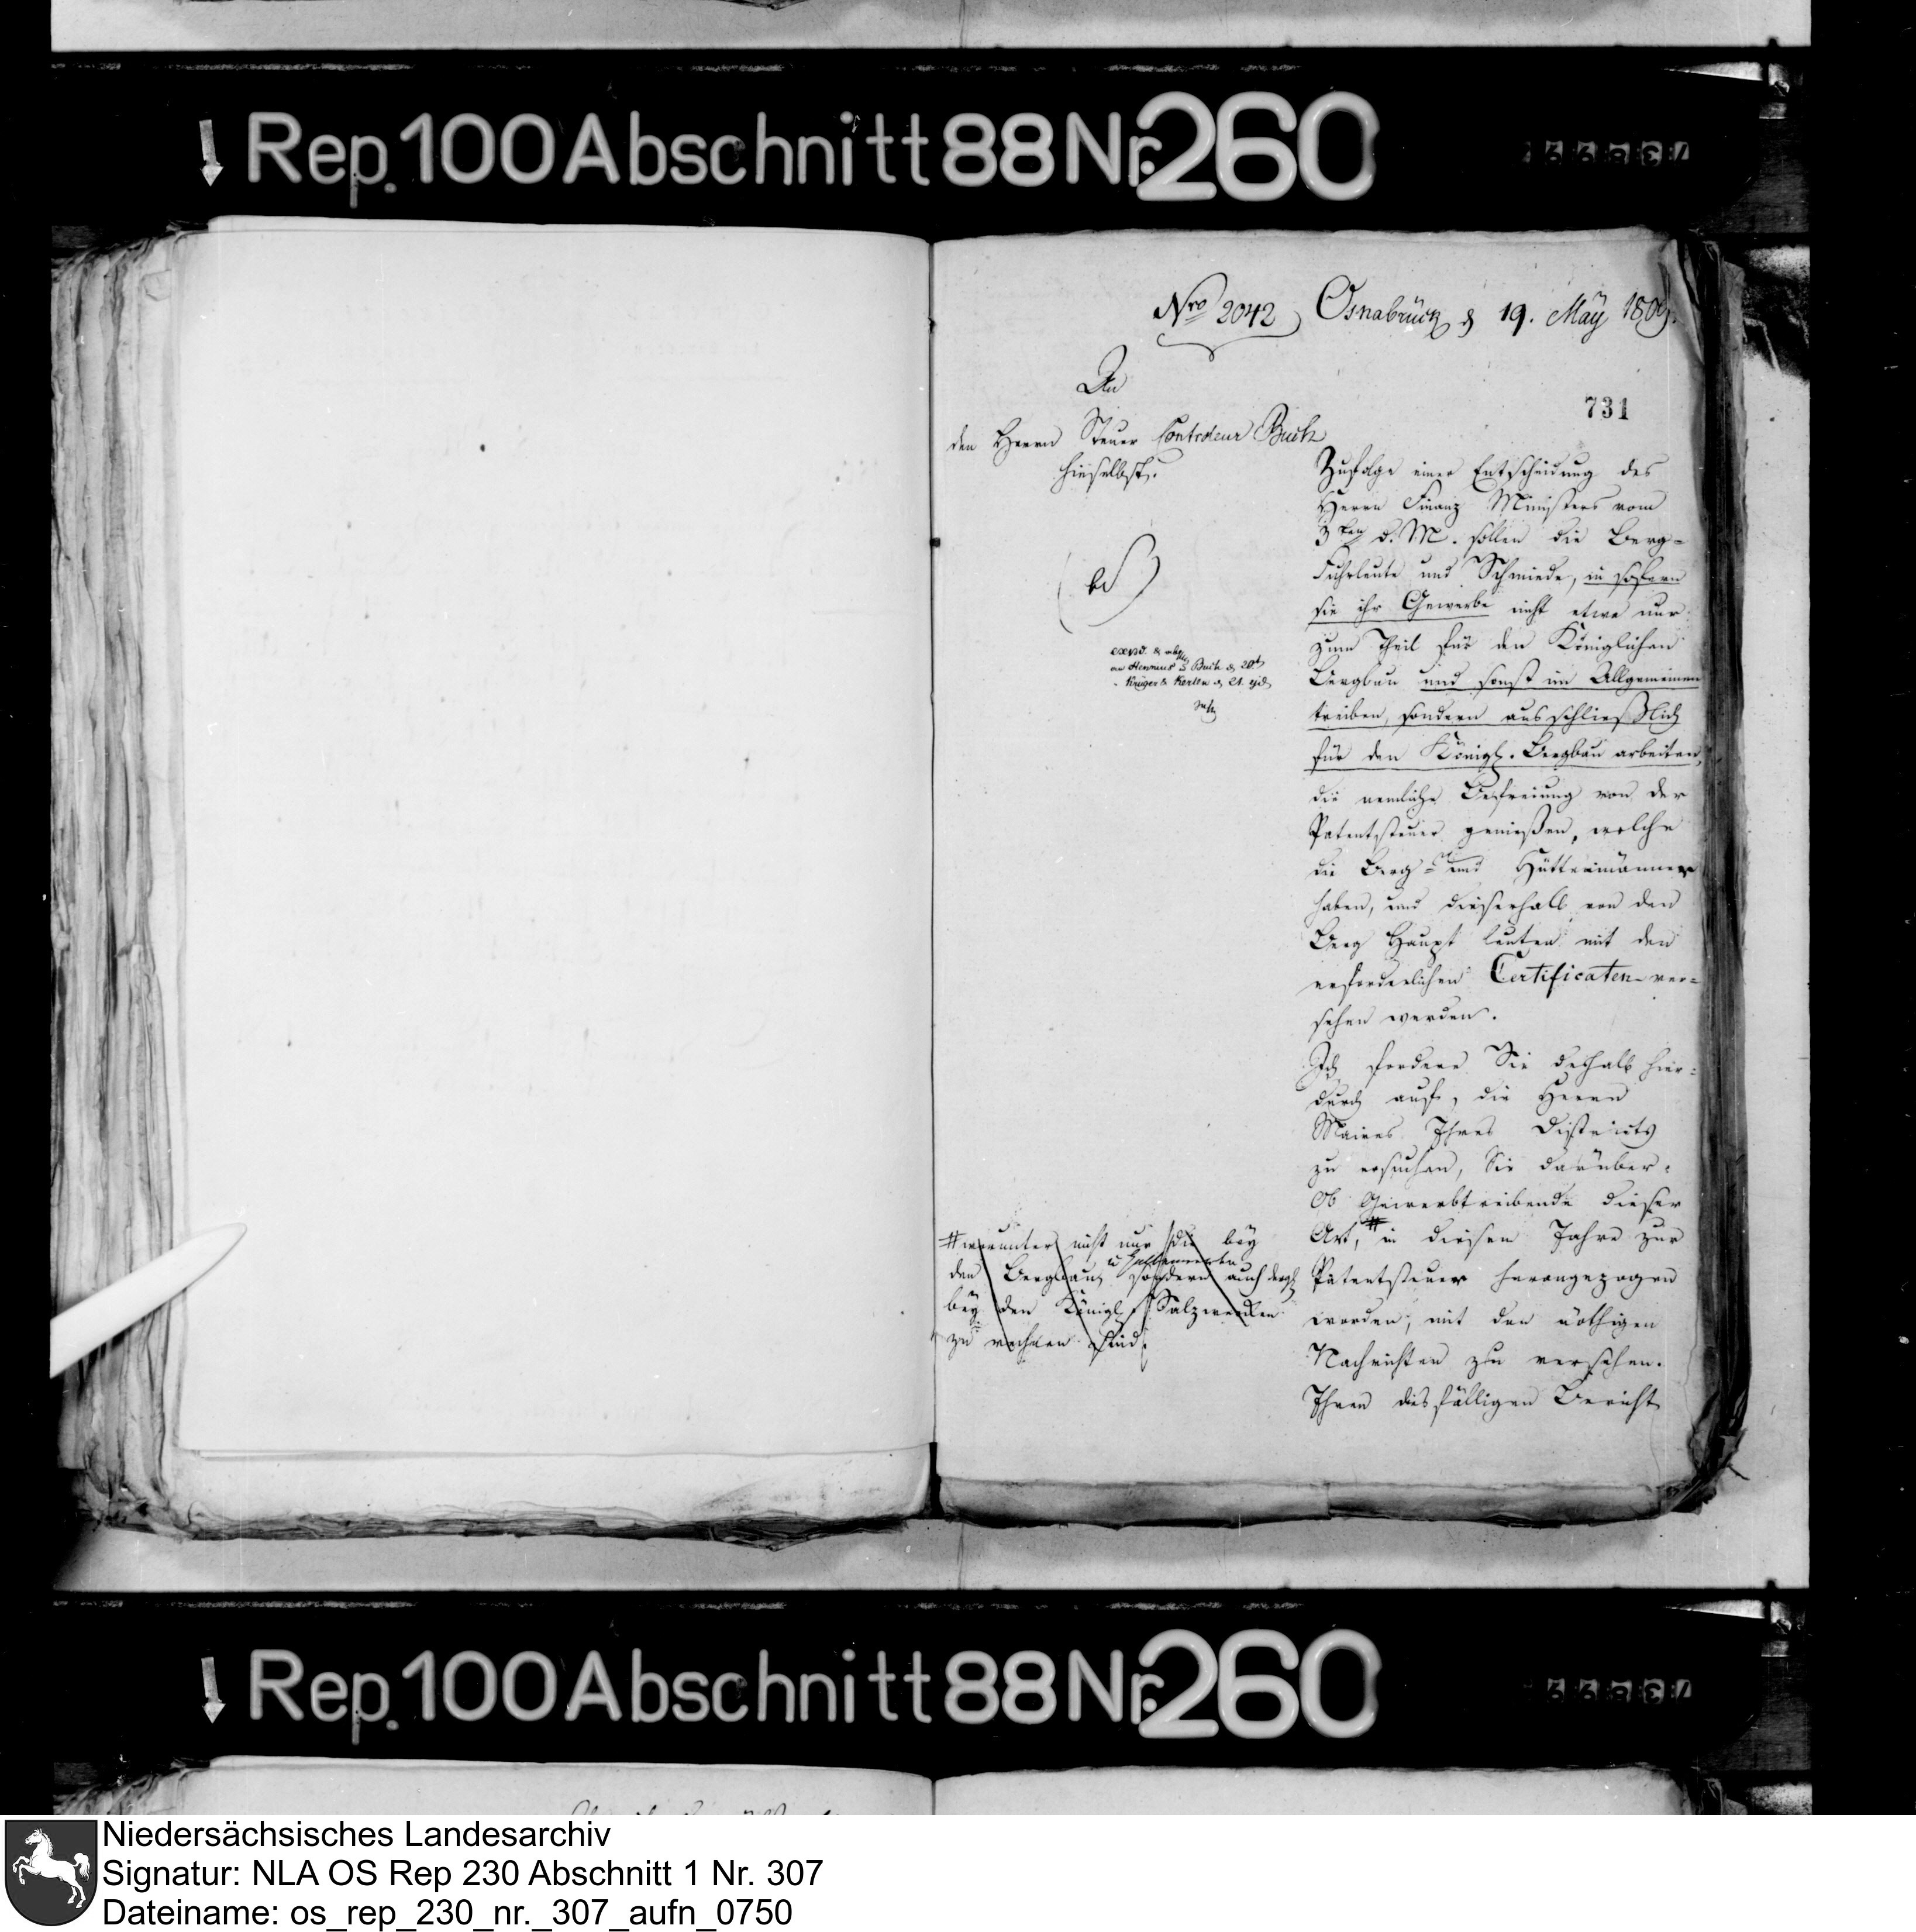 Rep. 100 Abschnitt 88 Nr. 260
Nro 2042 Osnabrück d 19. May 1809.
731
An
den Herrn Steuer Controleur Buch
hieselbst.
expd.
Zufolge einer Entscheidung des
Herrn Finanz Ministers vom
3ten d. M. sollen die Berg-
Fuhrleute und Schmiede, in sofern
sie ihr Gewerbe nicht etwa nur
zum Theil für den Königlichen
Bergbau und sonst im Allgemeinen
treiben, sondern ausschließlich
für den Königl. Bergbau arbeiten,
die nemliche Befreiung von der
Patentsteuer genießen, welche
die Berg- und Hüttenmänner
haben, und dieserhalb von den
Berg Haupt leuten mit den
erforderlichen Certificaten ver-
sehen werden.
Ich fordere Sie deshalb hier-
durch auf, die Herrn
Maires Ihres Districts
zu ersuchen, Sie darüber,
Ob Gewerbtreibende dieser
Art, # in diesem Jahre zur
Patentsteuer herangezogen
worden, mit den nöthigen
Nachrichten zu versehen.
Ihren diesfälligen Bericht
# worunter nicht nur die bey
den Bergbau, sondern auch
bey den Königl. Salzwerken
zu rechnen sind,
Rep. 100 Abschnitt 88 Nr. 260
Niedersächsisches Landesarchiv
Signatur: NLA OS Rep 230 Abschnitt 1 Nr. 307
Dateiname: os_rep_230_nr._307_aufn_0750